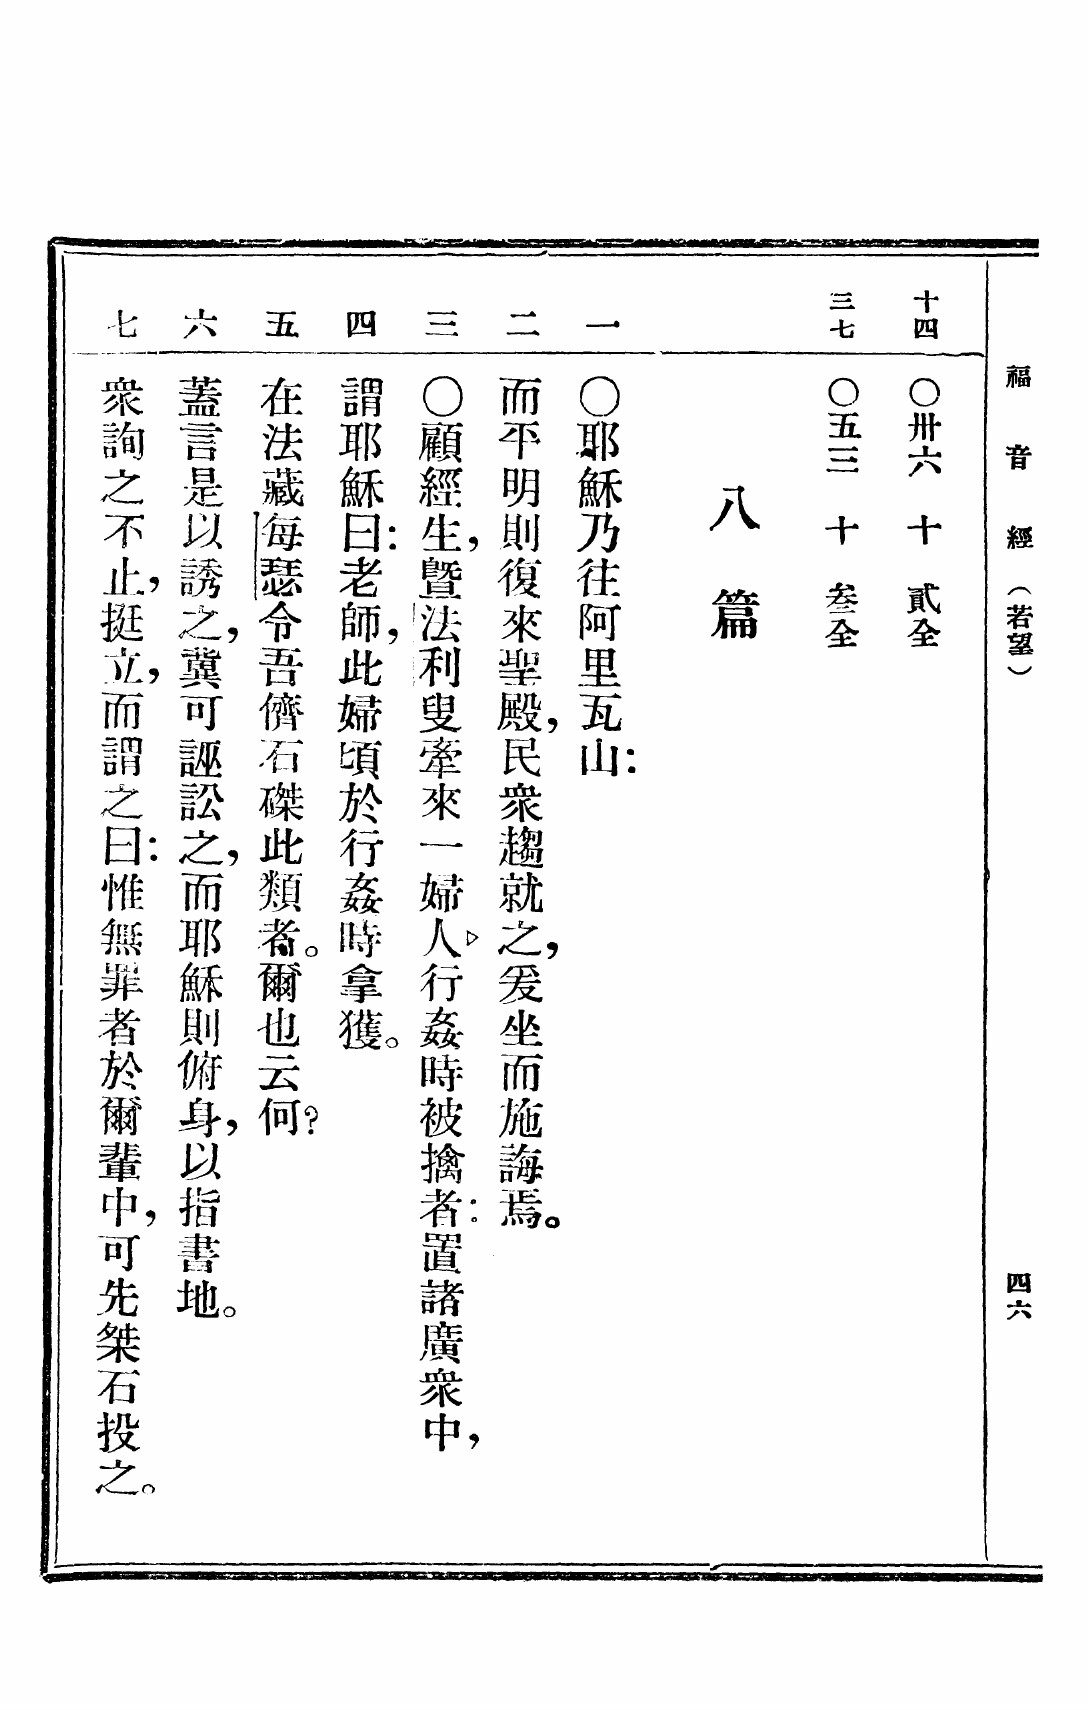 福音經（若望） 四六
十四 〇卅六 十 貳全
三七 〇五三 十 叁全
八篇
一 〇耶穌乃往阿里瓦山：
二 而平明則復來聖殿，民衆趨就之，爰坐而施誨焉。
三 〇顧經生，曁法利叟牽來一婦人▷行姦時被擒者：置諸廣衆中，
四 謂耶穌曰：老師，此婦頃於行姦時拿獲。
五 在法藏每瑟令吾儕石磔此類者。爾也云何？
六 蓋言是以誘之，冀可誣訟之，而耶穌則俯身，以指書地。
七 衆詢之不止，挺立，而謂之曰：惟無罪者於爾輩中，可先桀石投之。